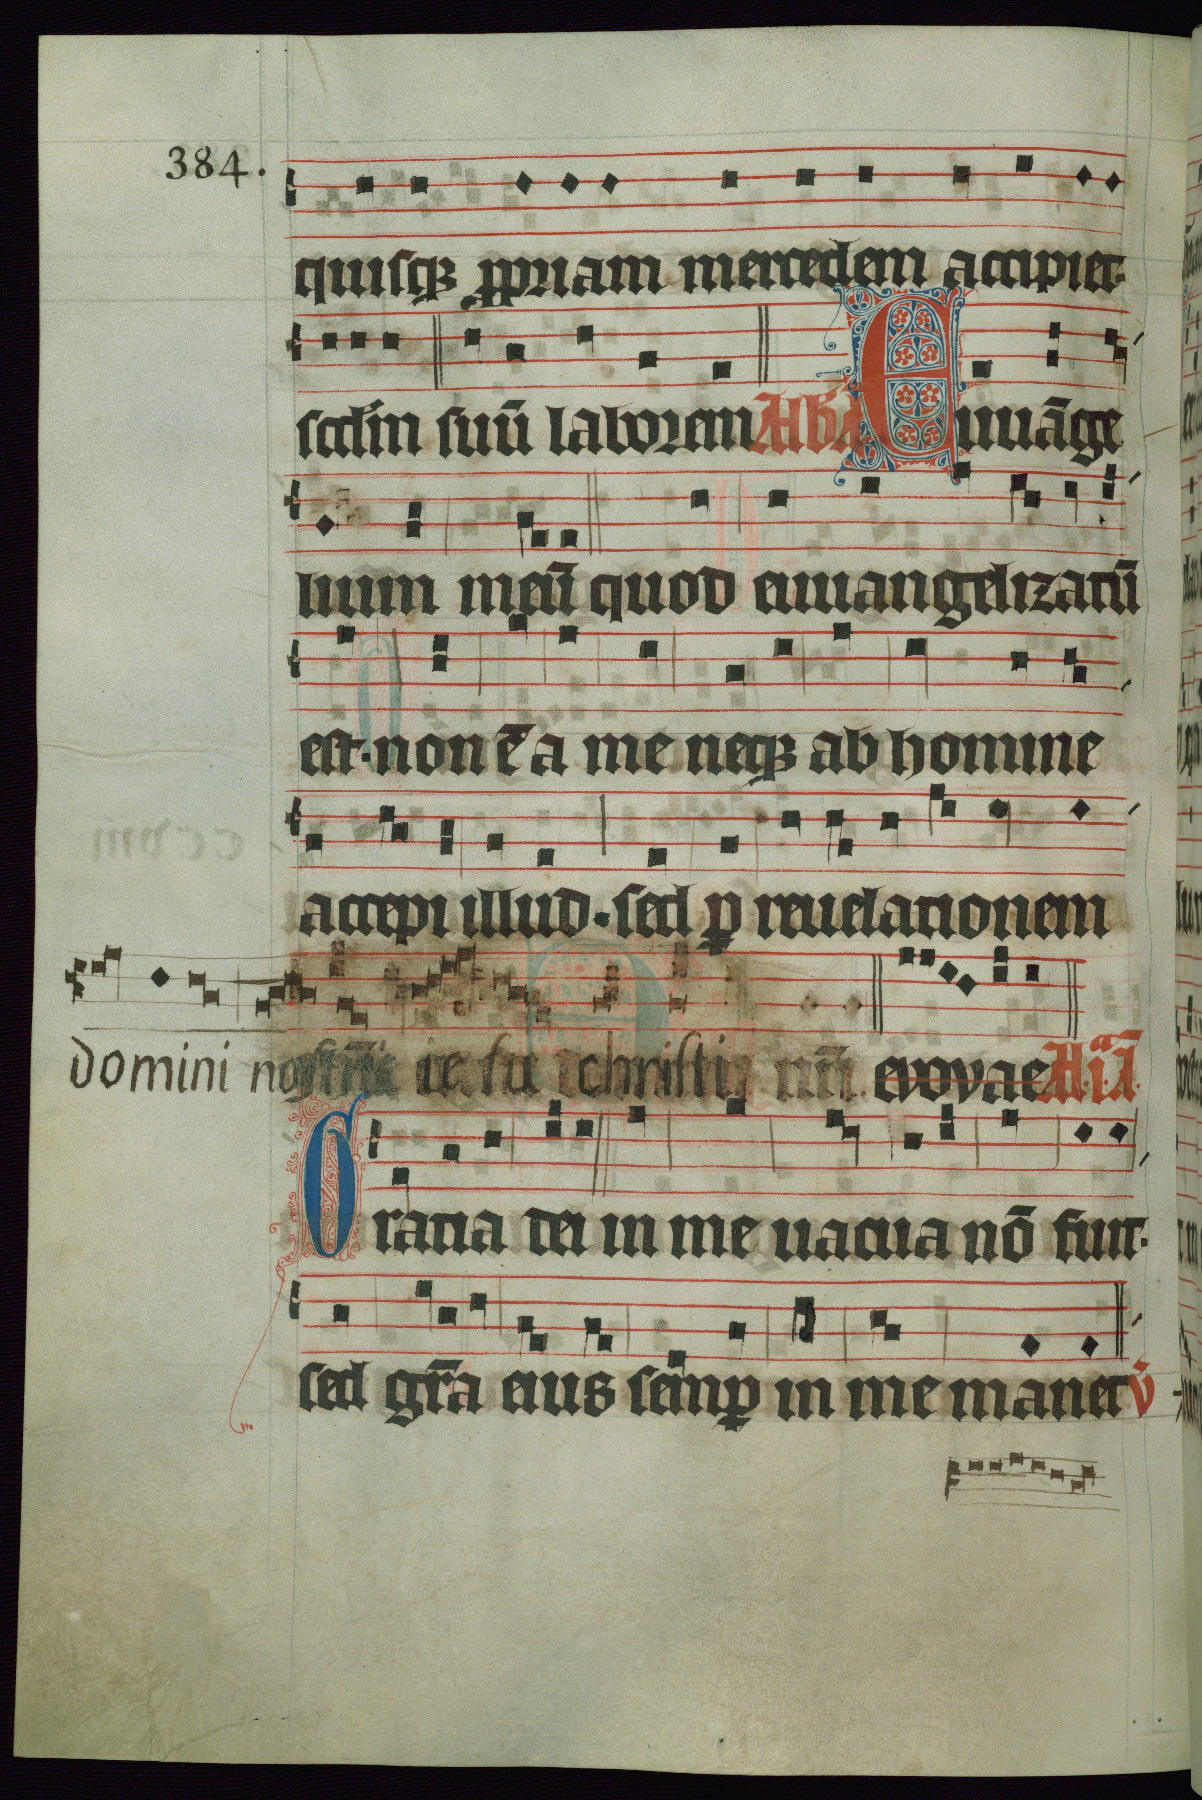 384.
quisq₃ ꝓpriam mercedem accipiet
scd̄m suū laborem E uuāge
lium meū quod euuangelizatū
est· non ē a me neq₃ ab homine
accepi illud· sed ꝑ reuelationem
domini iesu christi euovae
Gratia dei in me uacua nō fuit·
sed gr̄a eius semꝑ in me manet v̄